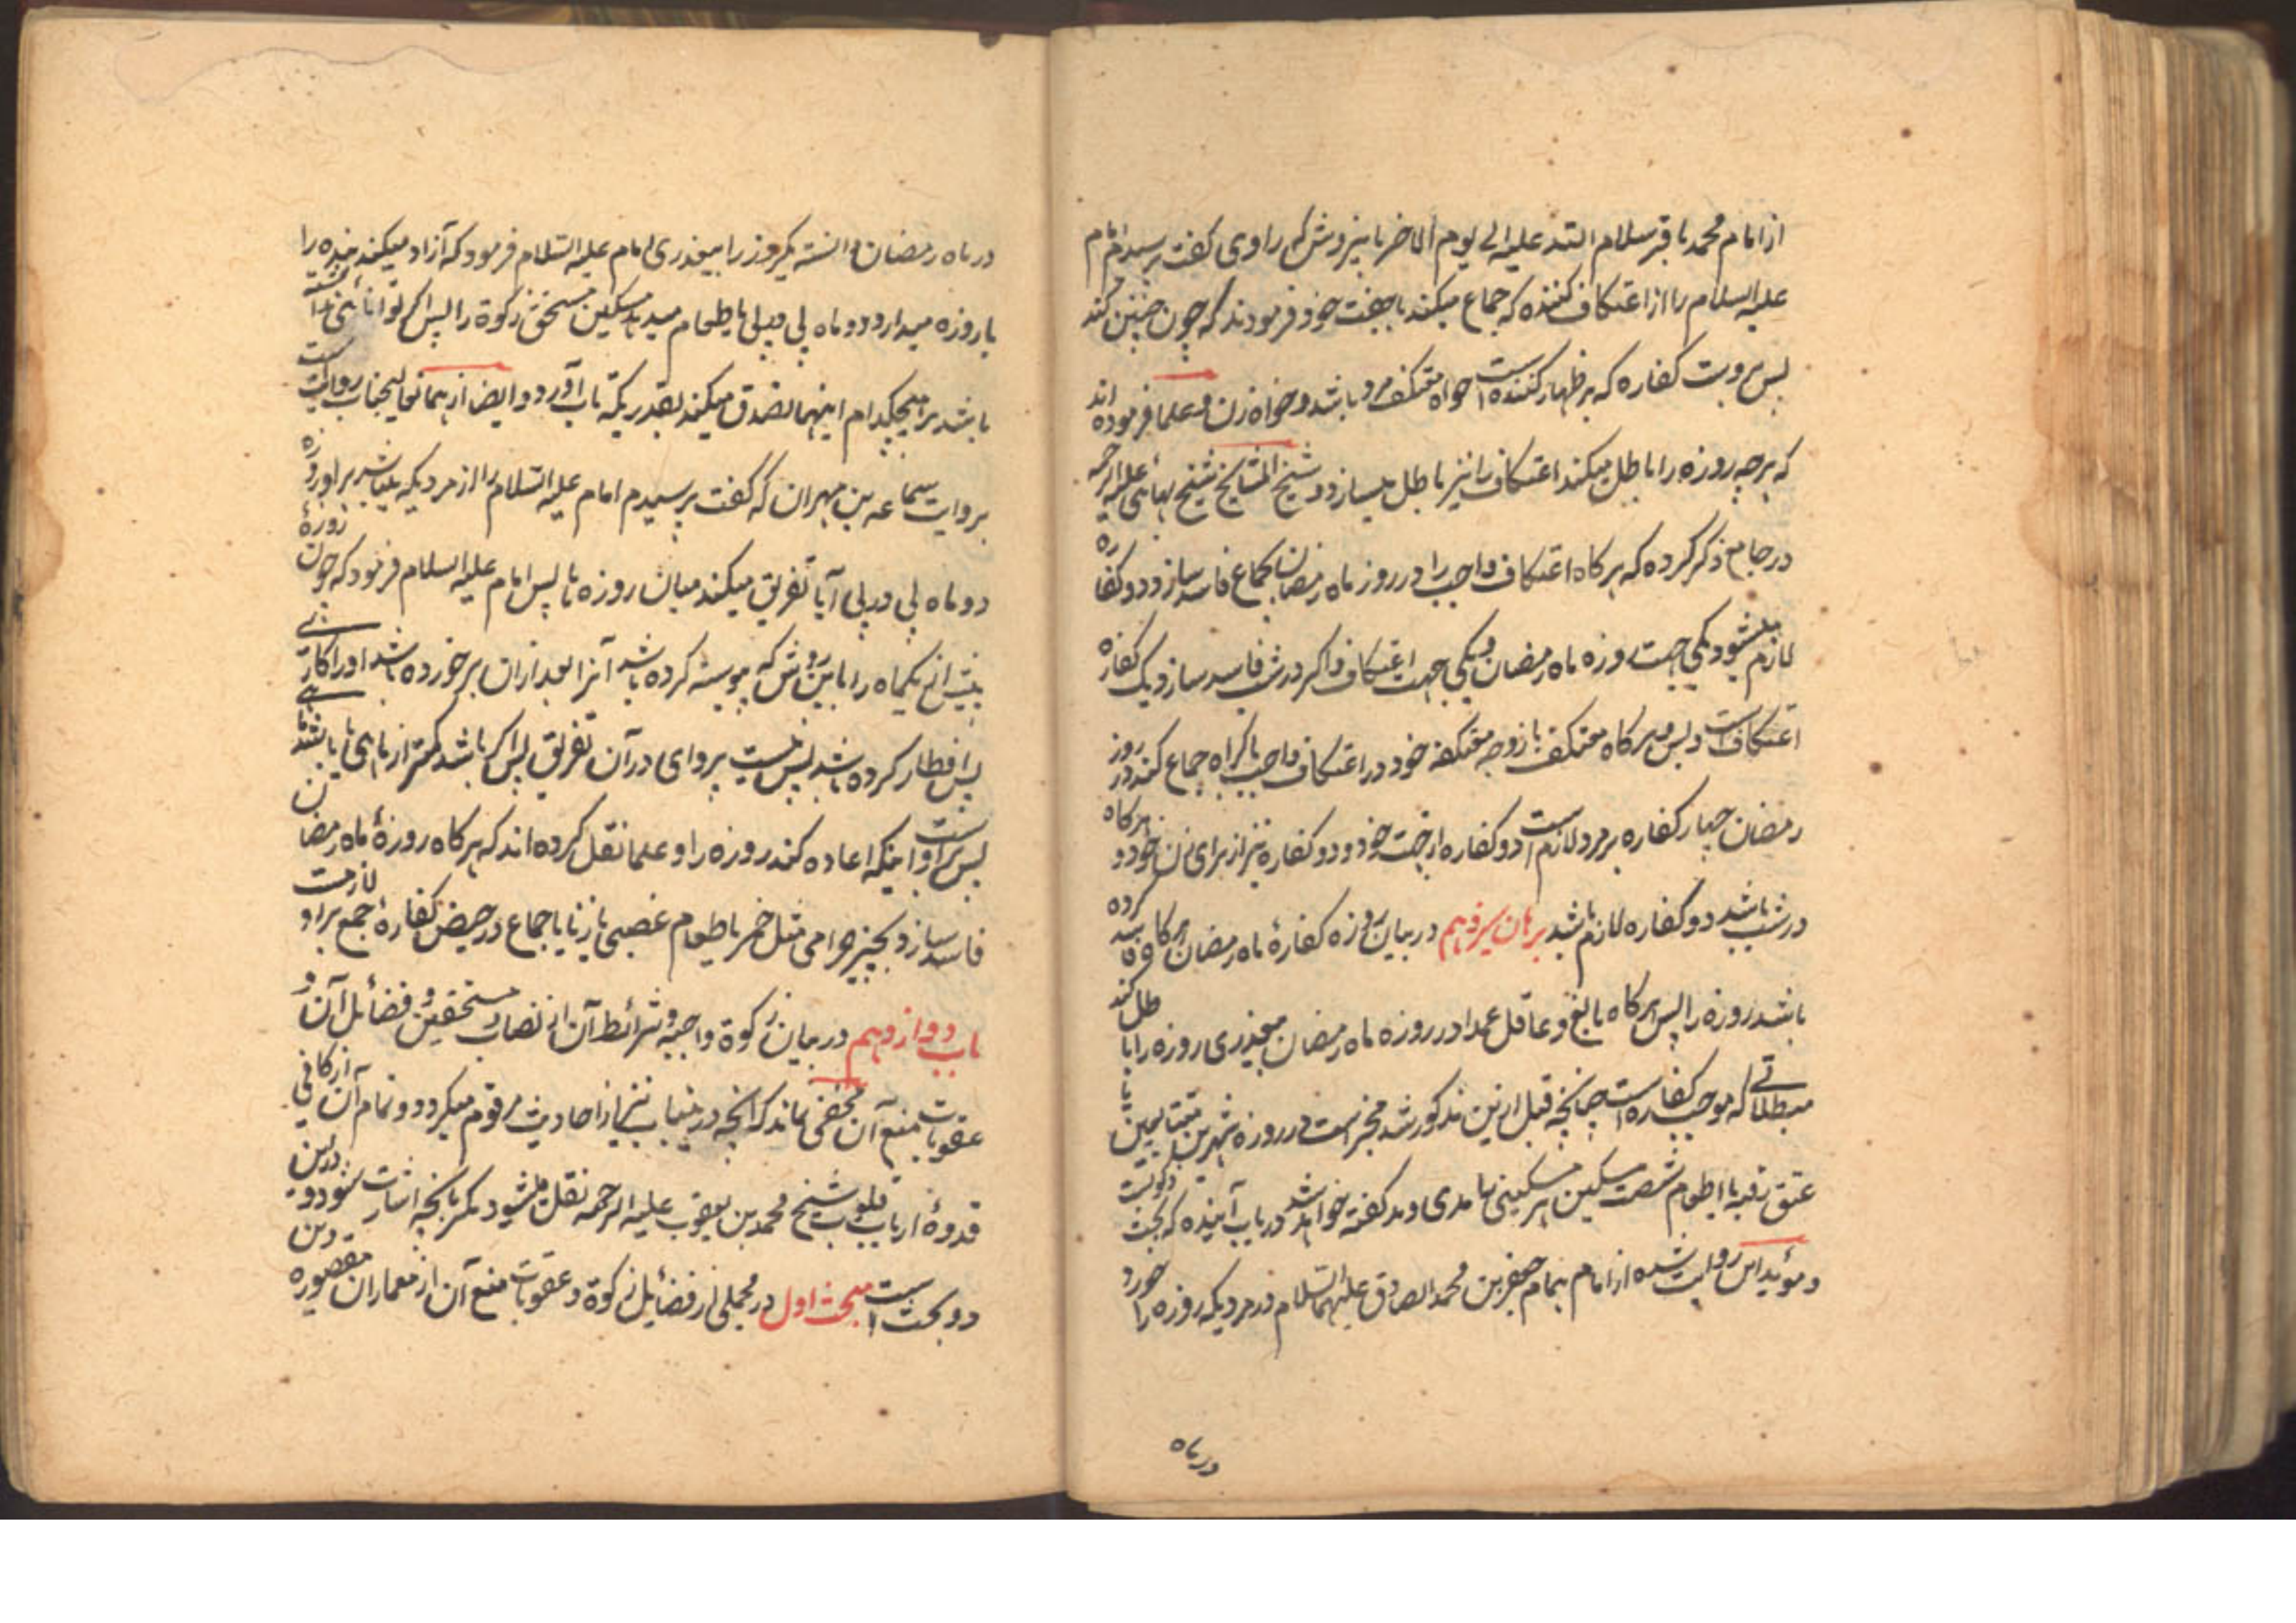 از امام محمد باقر سلام الله علیه الی یوم الاخر باینروش که راوی گفت پرسیدم امام
علیه السلام را از اعتکاف کننده که جماع میکند با جفت خود فرمودند که چون چنین کند
پس بروست کفاره که بر ظهار کننده است خواه معتکف مرد باشد و خواه زن و علما فرموده اند
که هرچه روزه را باطل میکند اعتکاف را نیز باطل میسازد و شیخ المشایخ شیخ بهائی علیه الرحمه
در جامع ذکر کرده که هرکاه اعتکاف واجب را در روز ماه رمضان بجماع فاسد سازد دو کفاره
لازم میشود یکی جهت روزه ماه رمضان و یکی جهت اعتکاف و اکر در شب فاسد سازد یک کفاره
اعتکافست و بس و هرکاه معتکف با زوجه معتکفه خود در اعتکاف واجب باکراه جماع کند در روز
رمضان چهار کفاره بر مرد لازم است دو کفاره از جهت خود و دو کفاره نیز از برای زن خود و هرکاه
در شب باشد دو کفاره لازم باشد برهان سیزدهم در بیان روزه کفارهٔ ماه رمضان هرکاه فاسد کرده
باشد روزه را پس هرکاه بالغ و عاقل عمدا در روزه ماه رمضان بیعذری روزه را باطل کند
بمبطلاتی که موجب کفاره است چنانچه قبل ازین مذکور شد مخیر است در روزه شهرین متتابعین یا
عتق رقبه یا اطعام شصت مسکین هر مسکینی را مدی و مد کفته خواهد شد در باب آینده که بحث زکوتست
و مؤید این روایت شده از امام بهمام جعفر بن محمد الصادق علیهما السلام در مردیکه روزه را خورد
در ماه
در ماه رمضان دانسته یکروز را بیعذری امام علیه السلام فرمود که آزاد میکند بنده را
یا روزه میدارد دو ماه پی در پی یا طعام میدهد مسکین مستحق زکوة را پس اکر توانائی نداشته
باشد بر هیچکدام اینها تصدق میکند بقدریکه تاب آورد و ایضا از همان عالیجناب روایتست
بروایت سماعه بن مهران که گفت پرسیدم امام علیه السلام را از مردیکه میباشد بر او روزه
دو ماه پی در پی آیا تفریق میکند میان روزه ها پس امام علیه السلام فرمود که چون روزهٔ
بیش از یکماه را باین روش که پیوسته کرده باشد آنرا بعد ازان برخورده باشد او را کاری
پس افطار کرده باشد پس نیست پروای در آن تفریق پس اکر باشد کمتر از ماهی یا ماهی باشد
پس بر اوست اینکه اعاده کند روزه را و علما نقل کرده اند که هرکاه روزهٔ ماه رمضان
فاسد سازد بچیز حرامی مثل خمر یا طعام غصبی یا زنا یا جماع در حیض کفارهٔ جمع بر او لازمست
باب دوازدهم در بیان زکوة واجبه و شرائط آن از نصاب و مستحقین و فضائل آن و
عقوبات منع آن مخفی نماند که آنچه درینباب نیز از احادیث مرقوم میکردد و تمام آن از کافی
قدوهٔ ارباب قلوب شیخ محمد بن یعقوب علیه الرحمه نقل میشود مکر بآنچه اشارت شود و درین
دو بحث است مبحث اول در مجملی از فضائل زکوة و عقوبات منع آن از معماران مقصوره دین